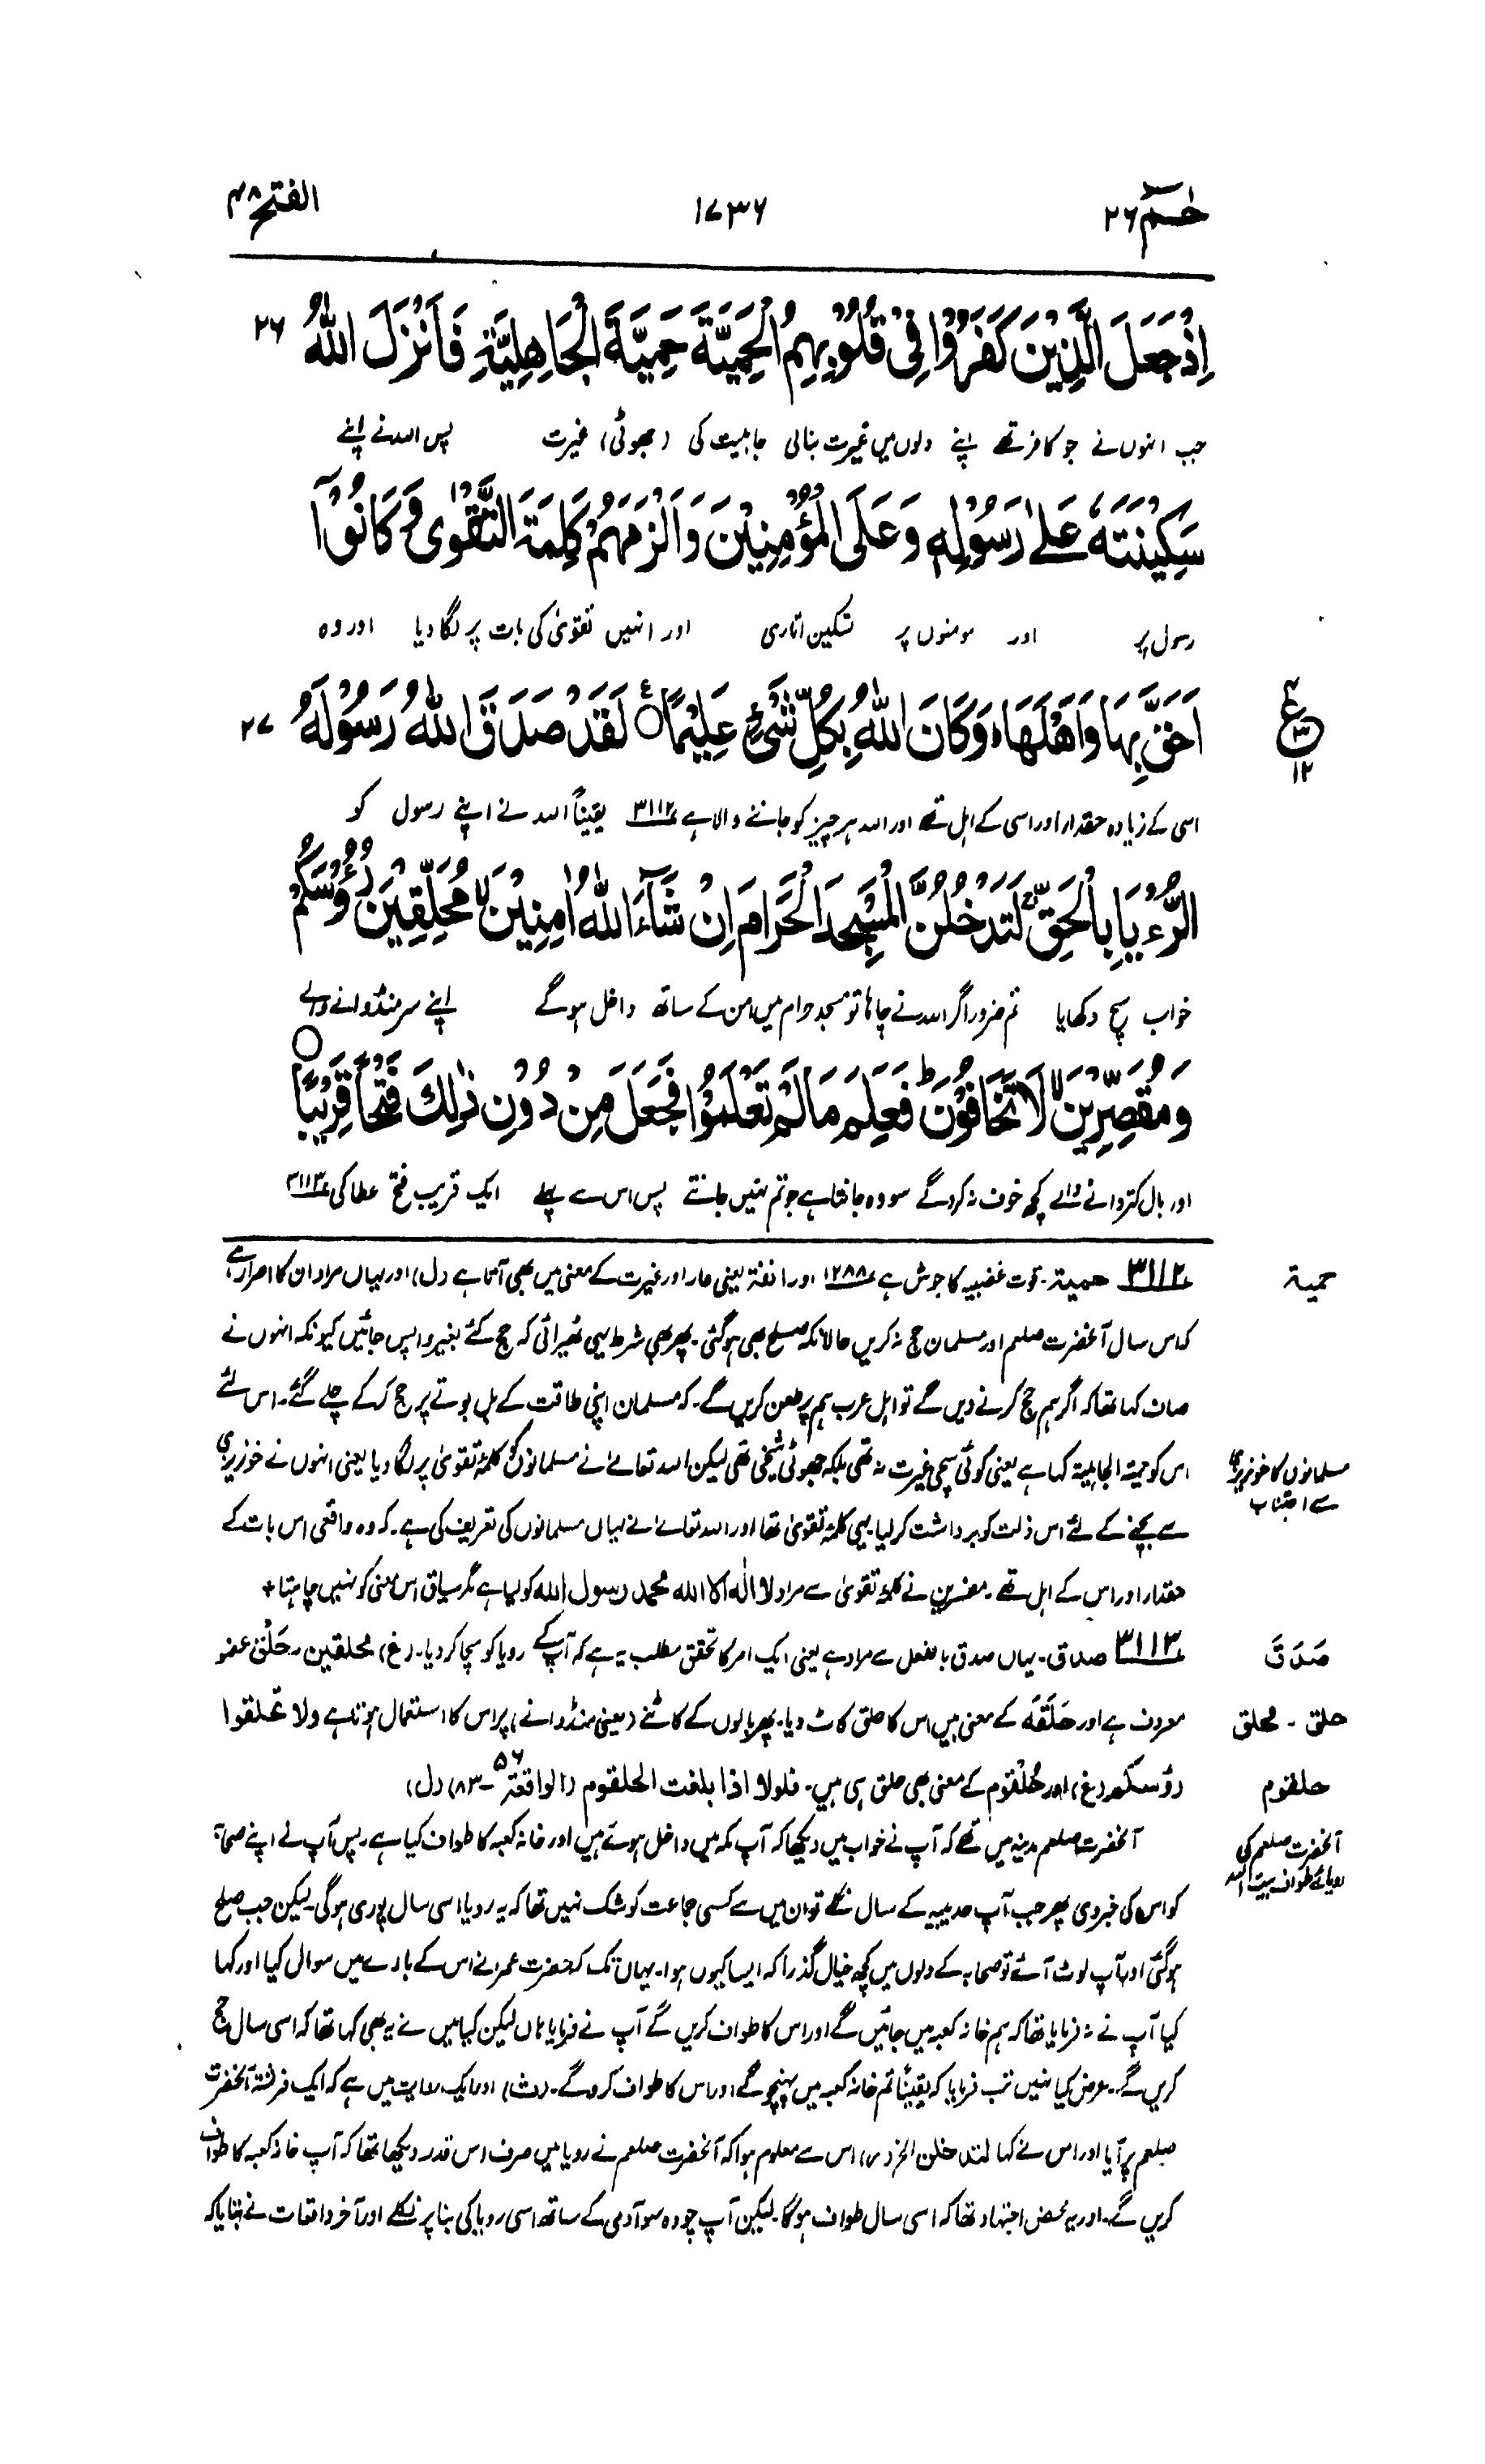 حٰمٓ ۲۶
۱۷۳۶
الفتح ۴۸
اِذْ جَعَلَ الَّذِيْنَ كَفَرُوْا فِيْ قُلُوْبِهِمُ الْحَمِيَّةَ حَمِيَّةَ الْجَاهِلِيَّةِ فَاَنْزَلَ اللّٰهُ ۲۶
جب انہوں نے جو کافر تھے اپنے دلوں میں غیرت بنالی جاہلیت کی (جھوٹی) غیرت پس اللہ نے اپنے
سَكِيْنَتَهٗ عَلٰى رَسُوْلِهٖ وَعَلَى الْمُؤْمِنِيْنَ وَاَلْزَمَهُمْ كَلِمَةَ التَّقْوٰى وَكَانُوْٓا
رسول پر اور مومنوں پر تسکین اتاری اور انہیں تقویٰ کی بات پر لگا دیا اور وہ
اَحَقَّ بِهَا وَاَهْلَهَا ؕ وَكَانَ اللّٰهُ بِكُلِّ شَيْءٍ عَلِيْمًا ○ لَقَدْ صَدَقَ اللّٰهُ رَسُوْلَهُ ۲۷
ع
۳
۱۲
اسی کے زیادہ حقدار اور اسی کے اہل تھے اور اللہ ہر چیز کو جاننے والا ہے ۳۱۱۲ یقیناً اللہ نے اپنے رسول کو
الرُّءْيَا بِالْحَقِّ ۚ لَتَدْخُلُنَّ الْمَسْجِدَ الْحَرَامَ اِنْ شَآءَ اللّٰهُ اٰمِنِيْنَ ۙ مُحَلِّقِيْنَ رُءُوْسَكُمْ
خواب سچ دکھایا تم ضرور اگر اللہ نے چاہا تو مسجد حرام میں امن کے ساتھ داخل ہوگے اپنے سر منڈوانے والے
وَمُقَصِّرِيْنَ ۙ لَا تَخَافُوْنَ ؕ فَعَلِمَ مَا لَمْ تَعْلَمُوْا فَجَعَلَ مِنْ دُوْنِ ذٰلِكَ فَتْحًا قَرِيْبًا ○
اور بال کتروانے والے کچھ خوف نہ کروگے سو وہ جانتا ہے جو تم نہیں جانتے پس اس سے پہلے ایک قریب فتح عطا کی ۳۱۱۳
حمیۃ
۳۱۱۲ حمیۃ۔ قوت غضبیہ کا جوش ہے ۱۲۸۸ اور انفۃ یعنی عار اور غیرت کے معنی میں بھی آتا ہے (ل) اور یہاں مراد ان کا اصرار ہے
کہ اس سال آنحضرت صلعم اور مسلمان حج نہ کریں حالانکہ صلح بھی ہوگئی۔ پھر بھی شرط یہی ٹھیرائی کہ حج کئے بغیر واپس جائیں کیونکہ انہوں نے
صاف کہا تھا کہ اگر ہم حج کرنے دیں گے تو اہل عرب ہم پر طعن کریں گے۔ کہ مسلمان اپنی طاقت کے بل بوتے پر حج کرکے چلے گئے۔ اس لئے
اس کو حمیۃ الجاہلیۃ کہا ہے یعنی کوئی سچی غیرت نہ تھی بلکہ جھوٹی شیخی تھی لیکن اللہ تعالےٰ نے مسلمانوں کو کلمۂ تقویٰ پر لگا دیا یعنی انہوں نے خونریزی
مسلمانوں کا خونریزی سے اجتناب
سے بچنے کے لئے اس ذلت کو برداشت کرلیا۔ یہی کلمۂ تقویٰ تھا اور اللہ تعالےٰ نے یہاں مسلمانوں کی تعریف کی ہے۔ کہ وہ واقعی اس بات کے
حقدار اور اس کے اہل تھے۔ مفسرین نے کلمۂ تقویٰ سے مراد لا الٰه الا الله محمد رسول الله کو لیا ہے مگر سیاق اس معنی کو نہیں چاہتا +
صَدَقَ
۳۱۱۳ صدق۔ یہاں صدق بالفعل سے مراد ہے یعنی ایک امر کا تحقق مطلب یہ ہے کہ آپ کے رویا کو سچا کر دیا۔ (غ) محلقین۔ حَلْق عضو
حلق ۔ محلق
معروف ہے اور حَلَقَه کے معنی ہیں اس کا حلق کاٹ دیا۔ پھر بالوں کے کاٹنے (یعنی منڈوانے) پر اس کا استعمال ہوتا ہے ولا تحلقوا
حلقوم
رؤسکم (غ) اور حُلْقوم کے معنی بھی حلق ہی ہیں۔ فلولا اذا بلغت الحلقوم (الواقعۃ ۵۶۔۸۳) (ل)
آنحضرت صلعم کی رویائے طواف بیت اللہ
آنحضرت صلعم مدینہ میں تھے کہ آپ نے خواب میں دیکھا کہ آپ مکہ میں داخل ہوتے ہیں اور خانہ کعبہ کا طواف کیا ہے۔ پس آپ نے اپنے صحابہ
کو اس کی خبر دی پھر جب آپ حدیبیہ کے سال نکلے تو ان میں سے کسی جماعت کو شک نہیں تھا کہ یہ رویا اسی سال پوری ہوگی۔ لیکن جب صلح
ہوگئی اور آپ لوٹ آئے تو صحابہ کے دلوں میں کچھ خیال گذرا کہ ایسا کیوں ہوا۔ یہاں تک کہ حضرت عمر نے اس کے بارے میں سوال کیا اور کہا
کیا آپ نے نہ فرمایا تھا کہ ہم خانہ کعبہ میں جائیں گے اور اس کا طواف کریں گے آپ نے فرمایا ہاں لیکن کیا میں نے یہ بھی کہا تھا کہ اسی سال حج
کریں گے۔ عرض کیا نہیں تب فرمایا کہ یقیناً تم خانہ کعبہ میں پہنچو گے اور اس کا طواف کروگے۔ (ث) اور ایک روایت میں ہے کہ ایک فرشتہ آنحضرت
صلعم پر آیا اور اس نے کہا لتدخلن الخ (ر) اس سے معلوم ہوا کہ آنحضرت صلعم نے رویا میں صرف اس قدر دیکھا تھا کہ آپ خانہ کعبہ کا طواف
کریں گے۔ اور یہ محض اجتہاد تھا کہ اسی سال طواف ہوگا۔ لیکن آپ چودہ سو آدمی کے ساتھ اسی رویا کی بنا پر نکلے اور آخر واقعات نے بتایا کہ